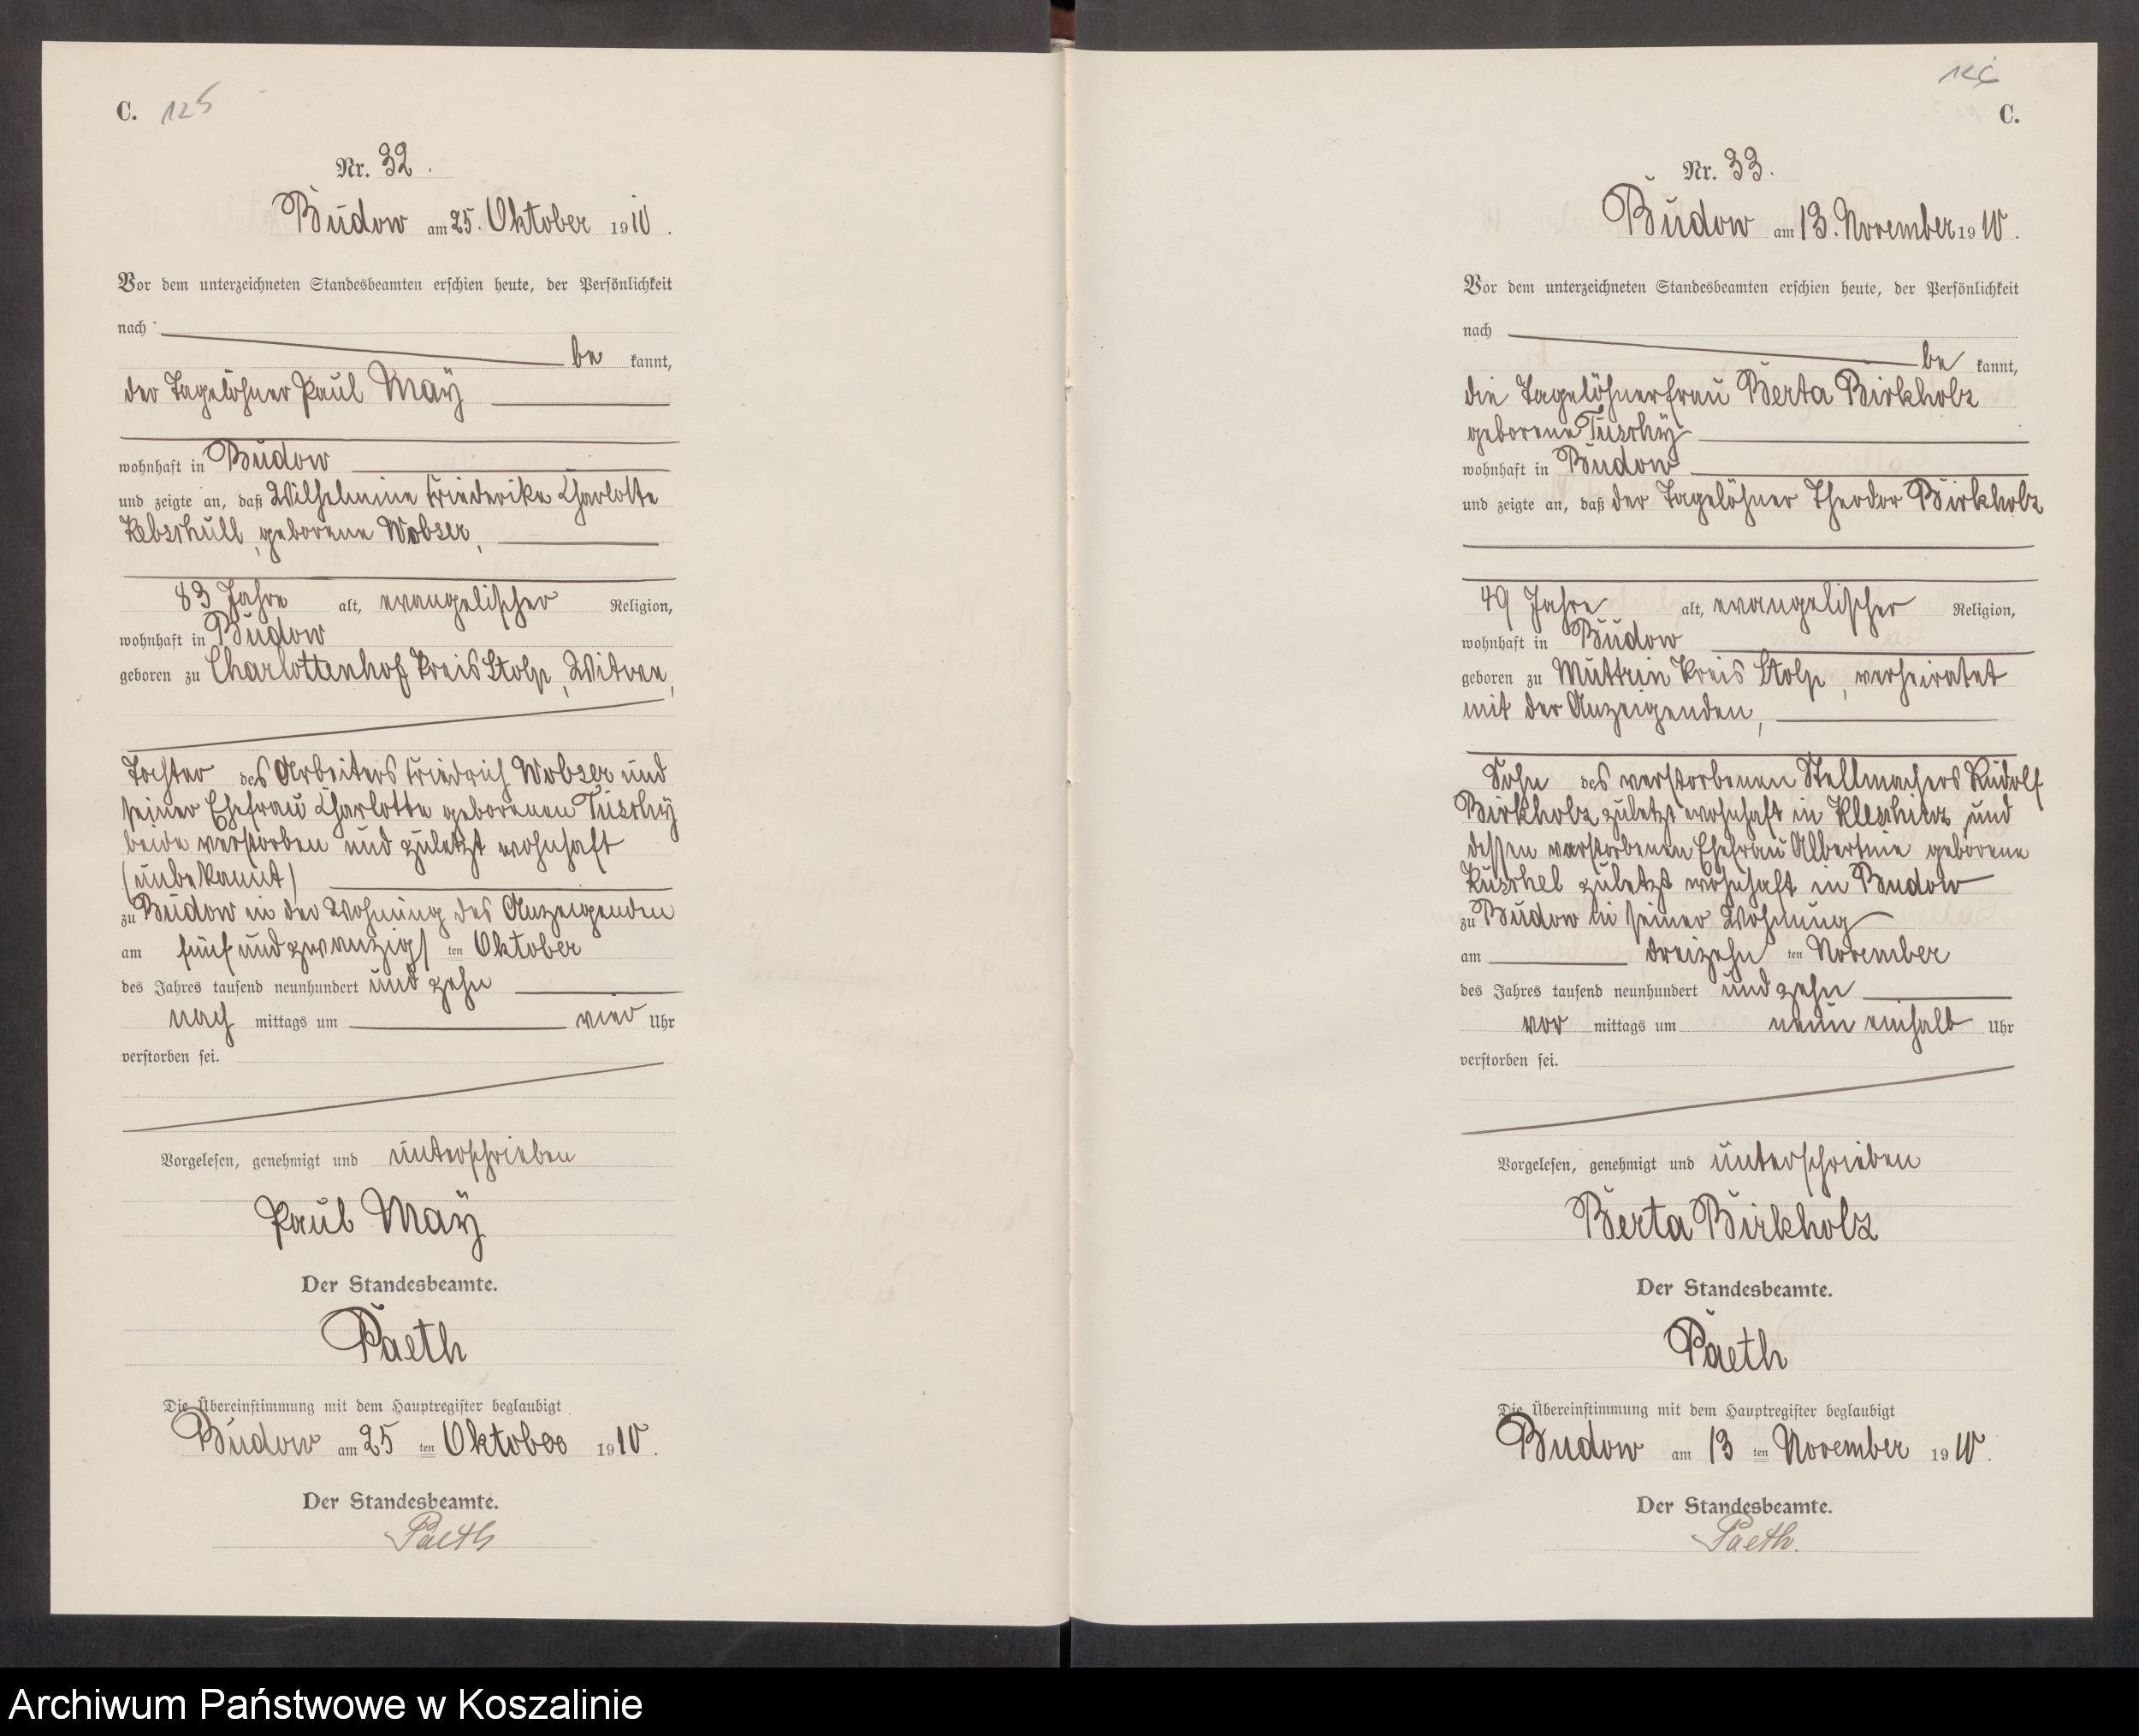 C. 125
Nr. 32.
Budow am 25. Oktober 1910.
Vor dem unterzeichneten Standesbeamten erschien heute, der Persönlichkeit
nach
be kannt,
der Tagelöhner Paul Maÿ
wohnhaft in Budow
und zeigte an, daß Wilhelmine Friederike Charlotte
Kebschull, geborene Wobser,
83 Jahre alt, evangelischer Religion,
wohnhaft in Budow
geboren zu Charlottenhof Kreis Stolp, Witwe,
Tochter des Arbeiters Friedrich Wobser und
seiner Ehefrau Charlotte geborenen Tuschÿ
beide verstorben und zuletzt wohnhaft
(unbekannt)
zu Budow in der Wohnung des Anzeigenden
am fünf und zwanzigs ten Oktober
des Jahres tausend neunhundert und zehn
nach mittags um vier Uhr
verstorben sei.
Vorgelesen, genehmigt und unterschrieben
Paul Maÿ
Der Standesbeamte.
Paeth
Die Übereinstimmung mit dem Hauptregister beglaubigt
Budow am 25 ten Oktober 1910.
Der Standesbeamte.
Paeth
126
C.
Nr. 33.
Budow am 13. November 1910.
Vor dem unterzeichneten Standesbeamten erschien heute, der Persönlichkeit
nach
be kannt,
die Tagelöhnerfrau Berta Birkholz
geborene Tuschÿ
wohnhaft in Budow
und zeigte an, daß der Tagelöhner Theodor Birkholz
49 Jahre alt, evangelischer Religion,
wohnhaft in Budow
geboren zu Muttrin Kreis Stolp, verheiratet
mit der Anzeigenden,
Sohn des verstorbenen Stellmachers Rudolf
Birkholz zuletzt wohnhaft in Kleschinz und
dessen verstorbenen Ehefrau Albertine geborene
Kuschel zuletzt wohnhaft in Budow
zu Budow in seiner Wohnung
am dreizehn ten November
des Jahres tausend neunhundert und zehn
vor mittags um neun einhalb Uhr
verstorben sei.
Vorgelesen, genehmigt und unterschrieben
Berta Birkholz
Der Standesbeamte.
Paeth
Die Übereinstimmung mit dem Hauptregister beglaubigt
Budow am 13 ten November 1910.
Der Standesbeamte.
Paeth.
Archiwum Państwowe w Koszalinie